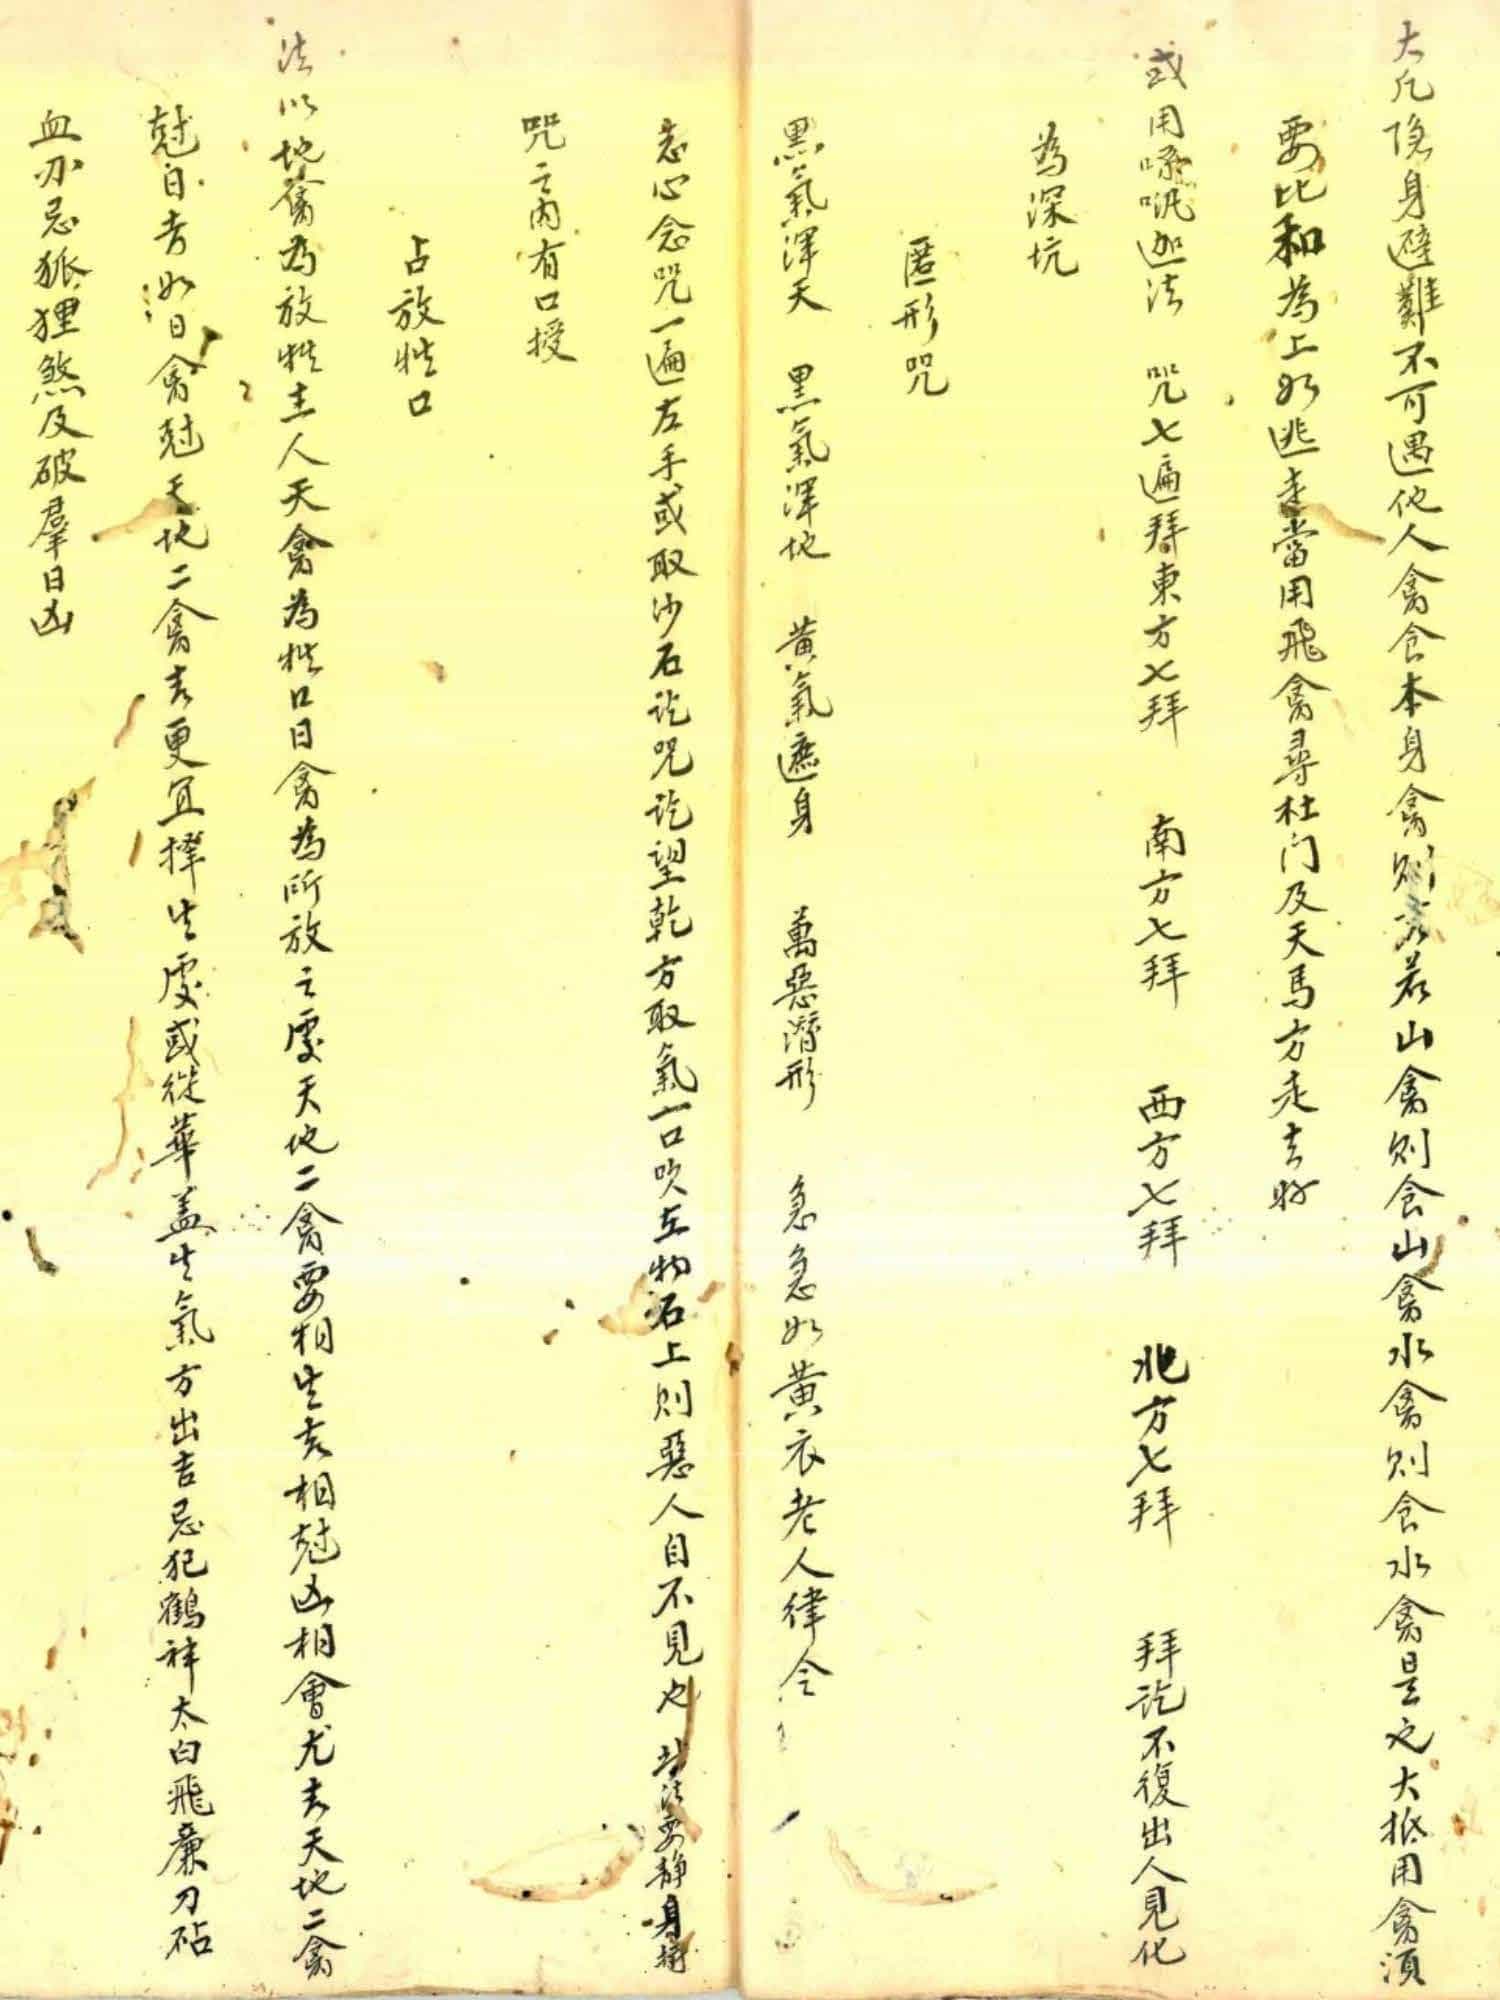 大凡隐身避難不可遇他人禽食本身禽则吉若山禽则食山禽水禽则食水禽是也大抵用禽須
要比和為上如逃走當用飛禽尋杜门及天馬方走去好
或用嗦吼迦法 咒七遍拜東方七拜 南方七拜 西方七拜 北方七拜 拜訖不復出人見化
為深坑
匿形咒
黑氣渾天 黑氣渾地 黄氣遮身 萬惡潛形 急急如黄衣老人律令
志心念咒一遍左手或取沙石訖咒訖望乾方取氣一口吹在物石上则惡人自不見也 此法要静身静
咒之内有口授
占放牲口
法以地禽為放牲主人天禽為牲口日禽為所放之處天地二禽要相生吉相尅凶相會尤吉天地二禽
尅日吉如日禽尅天地二禽吉更宜擇生處或從華盖生氣方出吉忌犯鶴神太白飛廉刀砧
血刃忌狐狸煞及破羣日凶